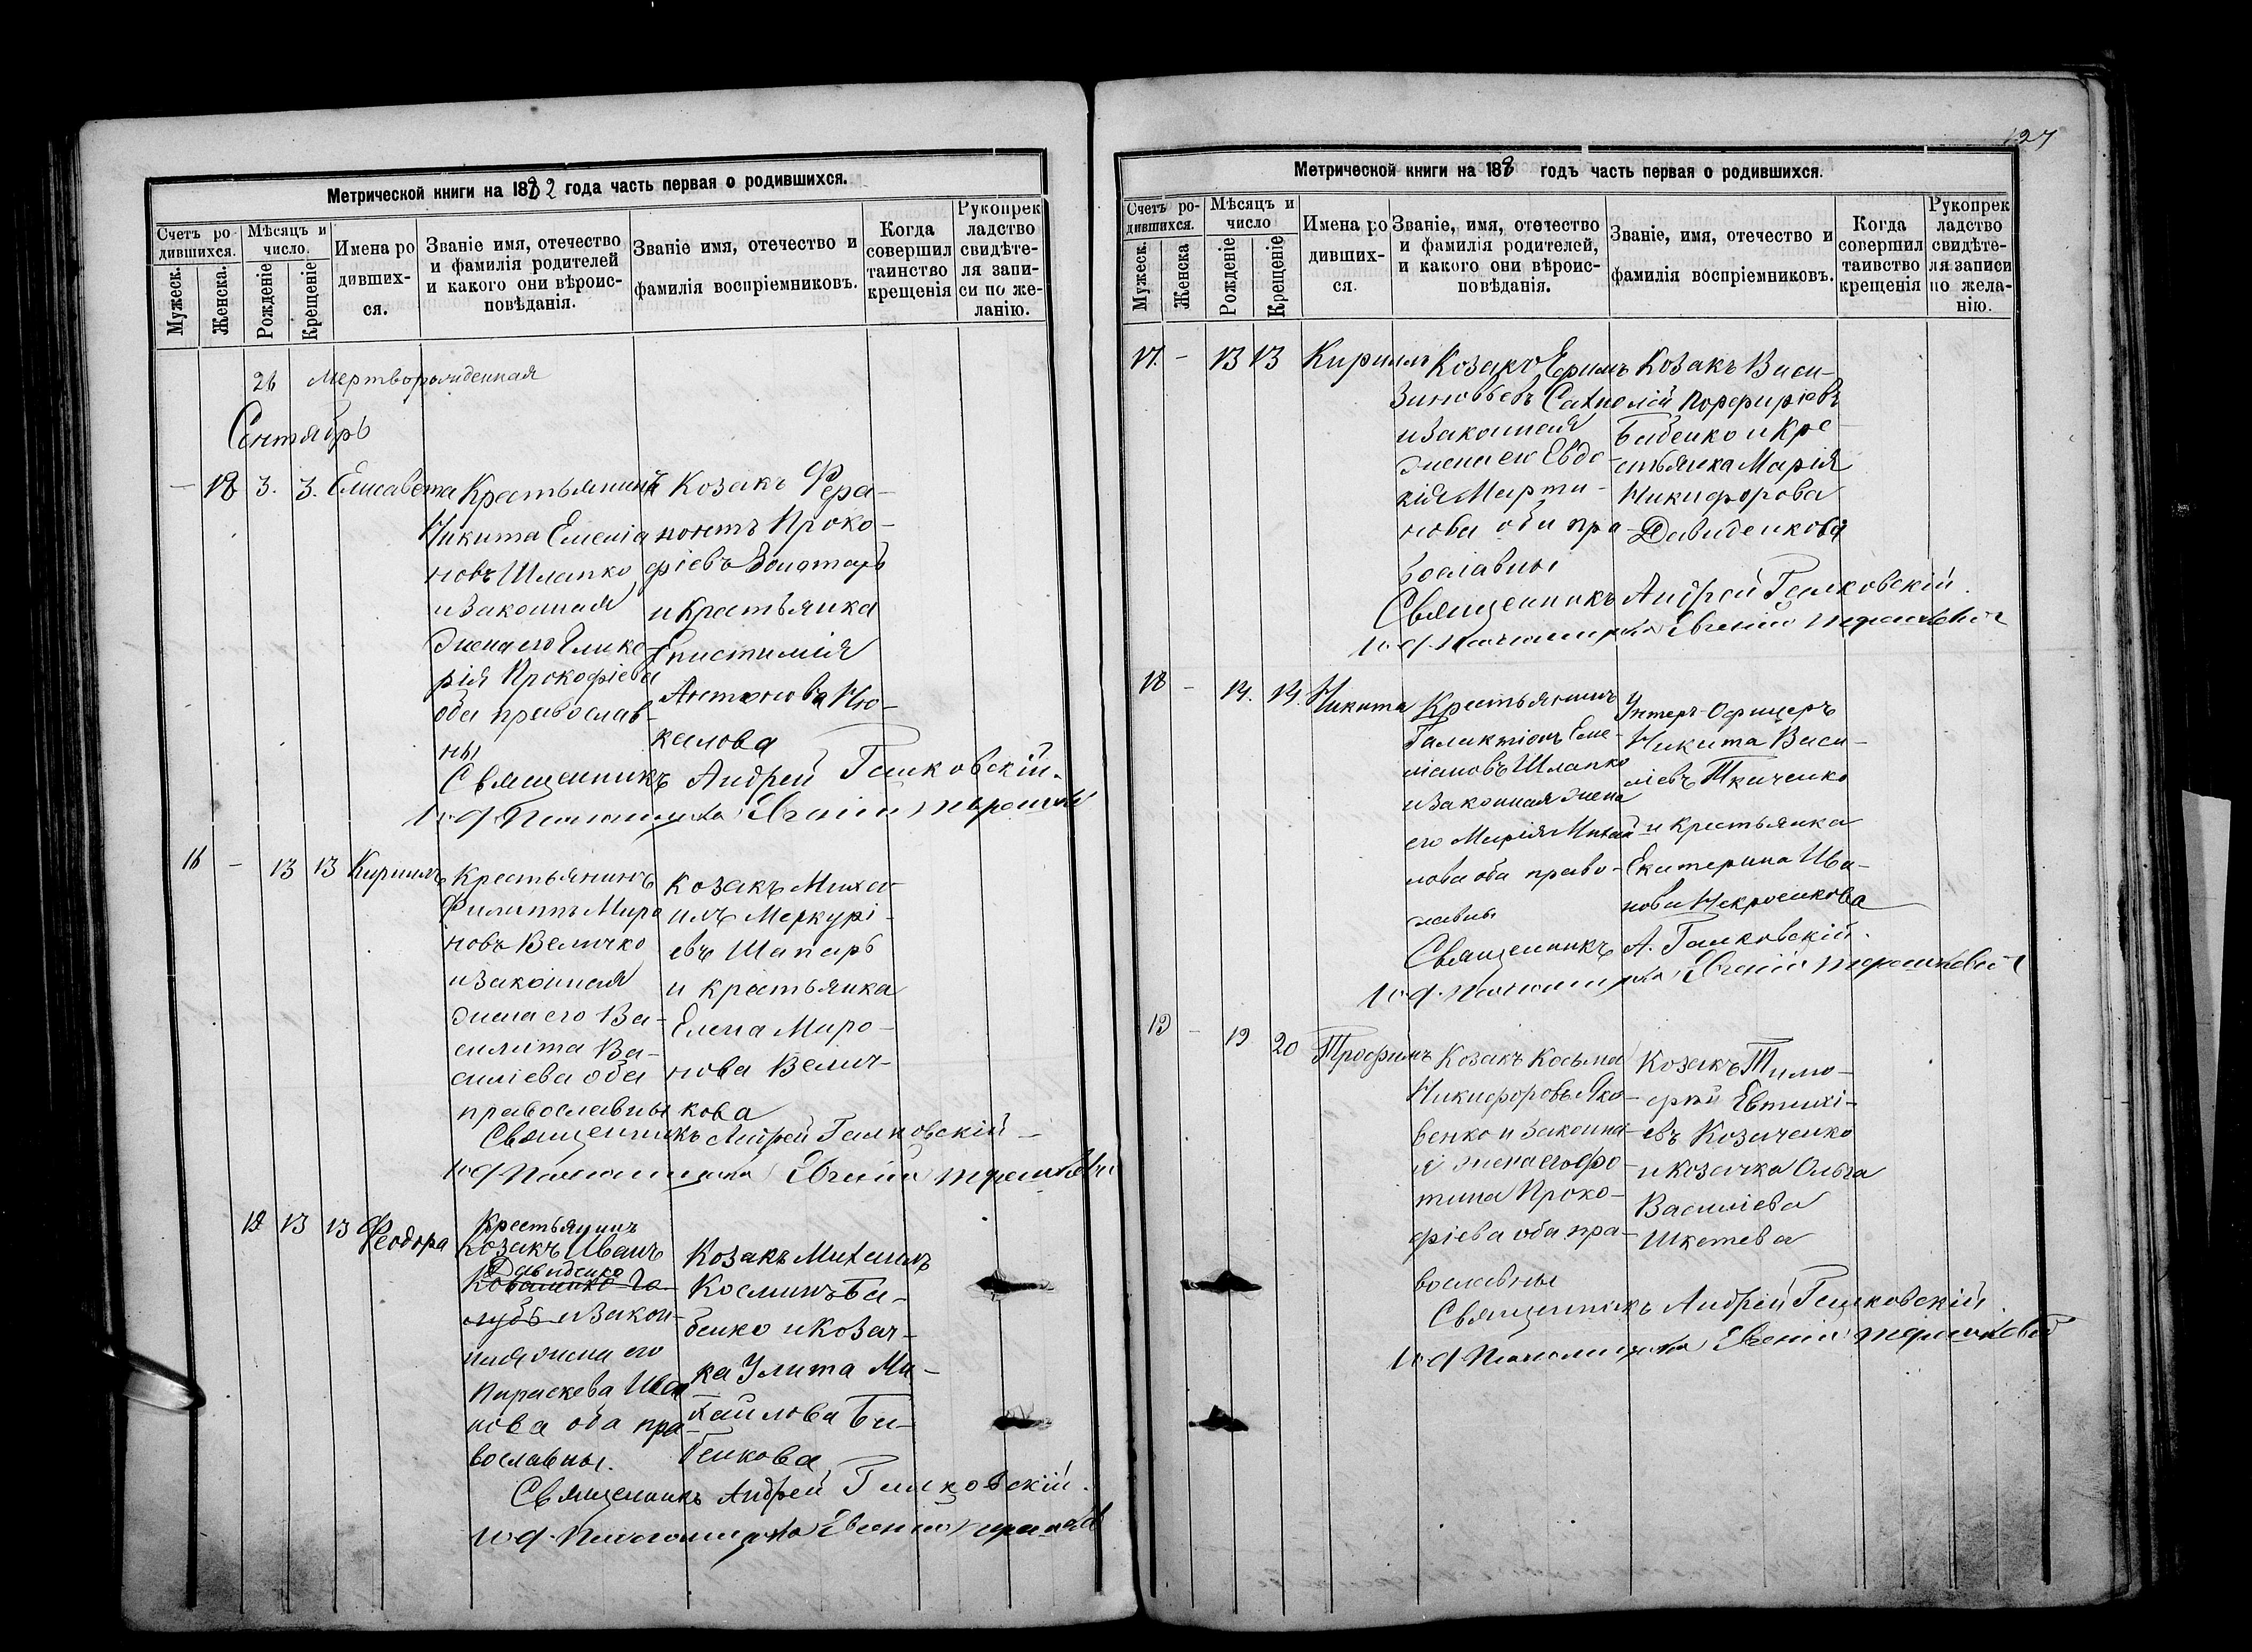 Метрической книги на 1882 года часть первая о родившихся.
Счетъ ро-
дившихся.
Мужеск.
Женска.
Мѣсяцъ и
число.
Рожденіе
Крещеніе
Имена ро
дивших-
ся.
Званіе имя, отечество
и фамилія родителей
и какого они вѣроис-
повѣданія.
Званіе имя, отечество и
фамилія воспріемниковъ.
Когда
совершил
таинство
крещенія
Рукопрек
ладство
свидѣте-
ля запи-
си по же-
ланію.
26 Мертворожденная
Сентябрь
— 18 3. 3. Елисавета
Крестьянинъ
Никита Емелiа
новъ Шлапко
и законная
жена его Глике-
рія Прокофіева
оба православ-
ны
Козакъ Фера-
понтъ Проко-
фіевъ Золотарь
и Крестьянка
Епистимія
Антонова Ню-
калова
Священникъ Андрей Галковскій.
16 — 13 13 Кириллъ
Крестьянинъ
Филиппъ Миро
новъ Величко
и законная
жена его Ва-
силиса Ва-
силіева оба
православны
Козакъ Миха-
илъ Меркурі-
евъ Шапарь
и крестьянка
Елена Миро-
нова Велич-
кова
Священникъ Андрей Галковскій
19 13 13 Феодора
Крестьянинъ
Козакъ Иванъ
Давиденко
Коваленко Го-
лубь и закон-
ная жена его
Параскева Ива
нова оба пра-
вославны.
Козакъ Михаилъ
Косминъ Ба-
бенко и Козач-
ка Улита Ми-
хаилова Ба-
бенкова
Священникъ Андрей Галковскій.
127
Метрической книги на 188 годъ часть первая о родившихся.
Счетъ ро-
дившихся.
Мужеск.
Женска
Мѣсяцъ и
число
Рожденіе
Крещеніе
Имена ро
дивших-
ся.
Званіе, имя, отечество
и фамилія родителей,
и какого они вѣроис-
повѣданія.
Званіе, имя, отечество и
фамилія воспріемниковъ.
Когда
совершил
таивство
крещенія
Рукопрек
ладство
свидѣте-
ля записи
по жела-
нію.
17. — 13 13 Кириллъ
Козакъ Ефимъ
Зиновьевъ Сахно
и законная
жена его Евдо-
кія Марти-
нова оба пра-
вославны
Козакъ Васи-
лій Порфиріевъ
Бабенко и Кре-
стьянка Марія
Никифорова
Давиденкова
Священникъ Андрей Галковскій.
18 — 14. 14. Никита
Крестьянинъ
Галактіонъ Еме-
ліановъ Шлапко
и законная жена
его Марія Михай
лова оба право-
славны
Унтеръ-Офицеръ
Никита Васи-
ліевъ Ткаченко
и крестьянка
Екатерина Ива-
нова
Священникъ А. Галковскій.
19 — 19 20 Трофимъ
Козакъ Косьма
Никифоровъ Яко-
венко и законна-
я жена его Фо-
тина Проко-
фіева оба пра-
вославны
Козакъ Тимо-
фей Евтихі-
евъ Козаченко
и козачка Ольга
Василіева
Шкетева
Священникъ Андрей Галковскій.